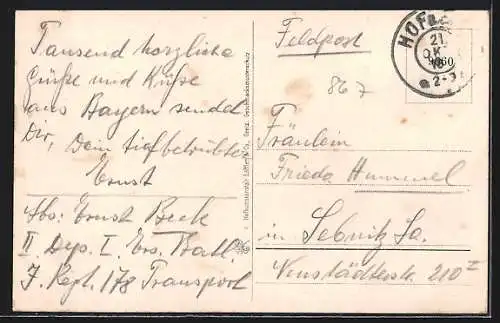 Tausend herzliche
Grüße und Küsse
aus Bayern sendet
Dir, Dein tiefbetrübter
Ernst
Abs: Ernst Beck
II. Dep. I. Ers. Batl.
J. Regt. 178 Transport
Feldpost
867
HOF
21
OK
9060
2-3
Fräulein
Frieda Hummel
in Sebnitz Sa.
Neustädterstr. 210 I